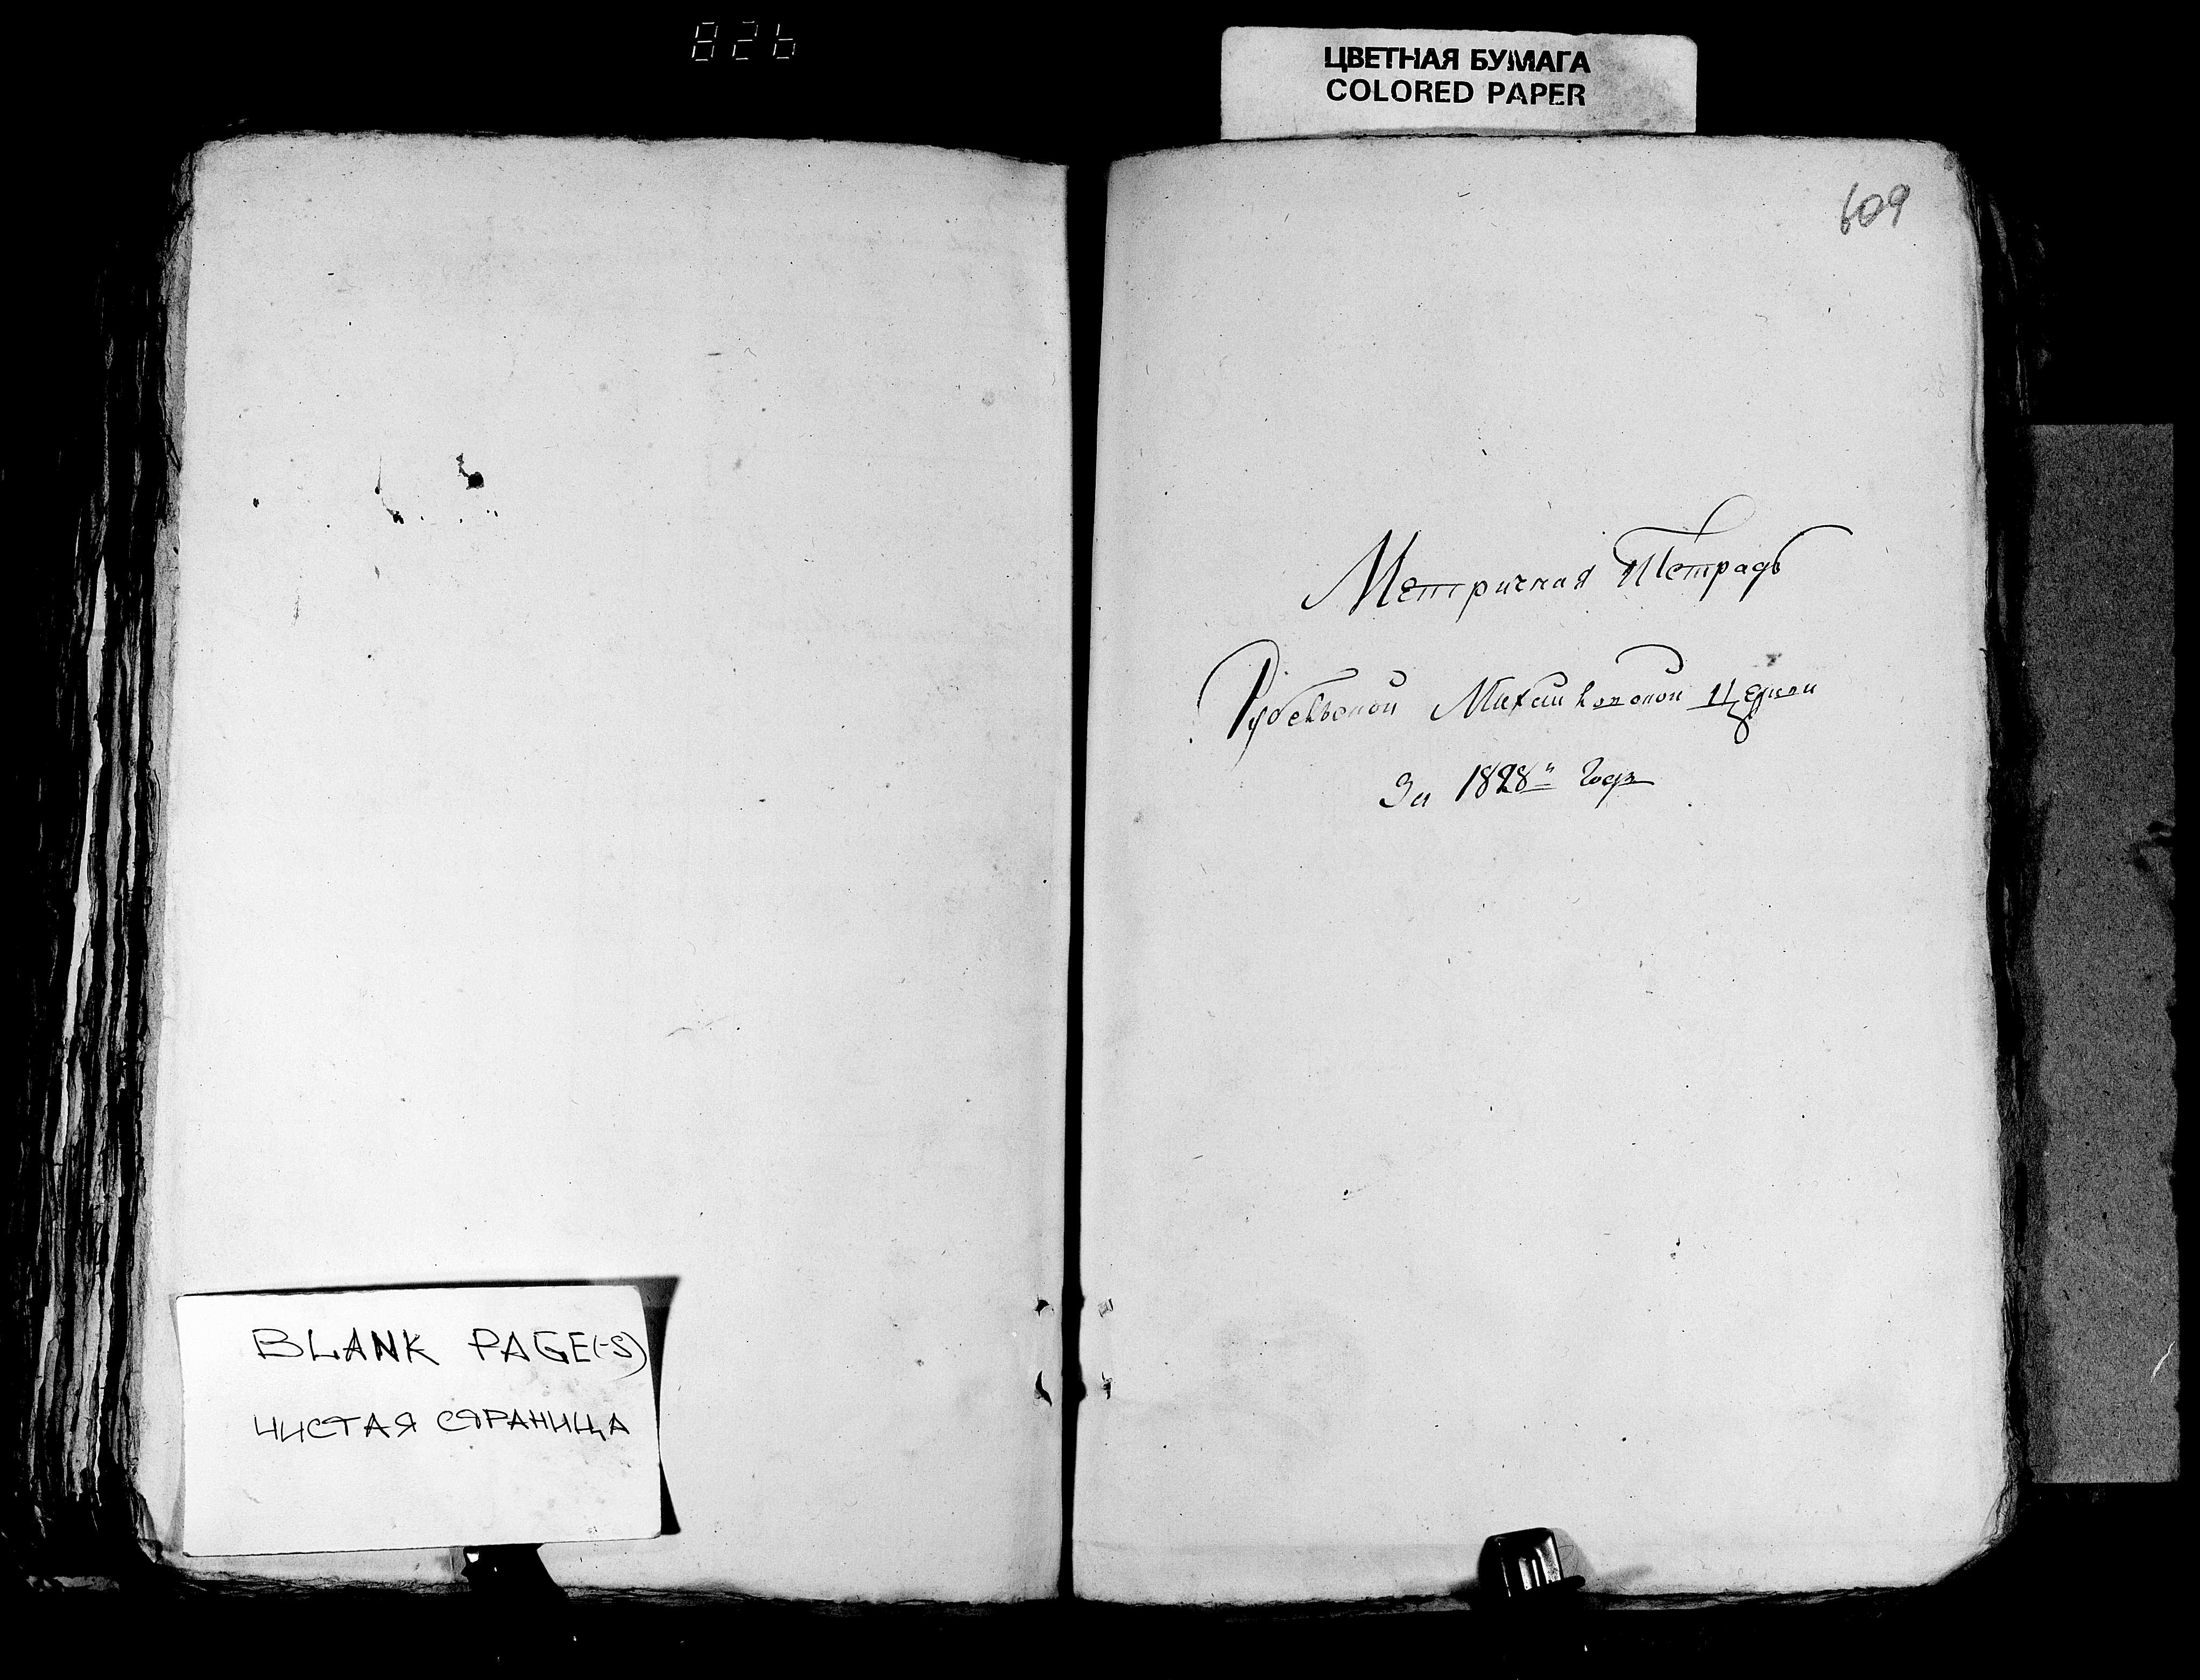 826
ЦВЕТНАЯ БУМАГА
COLORED PAPER
609
Метричная Тетрадь
Рубельской Михайловской Церкви
За 1828й Годъ
BLANK PAGE(-S)
ЧИСТАЯ СТРАНИЦА